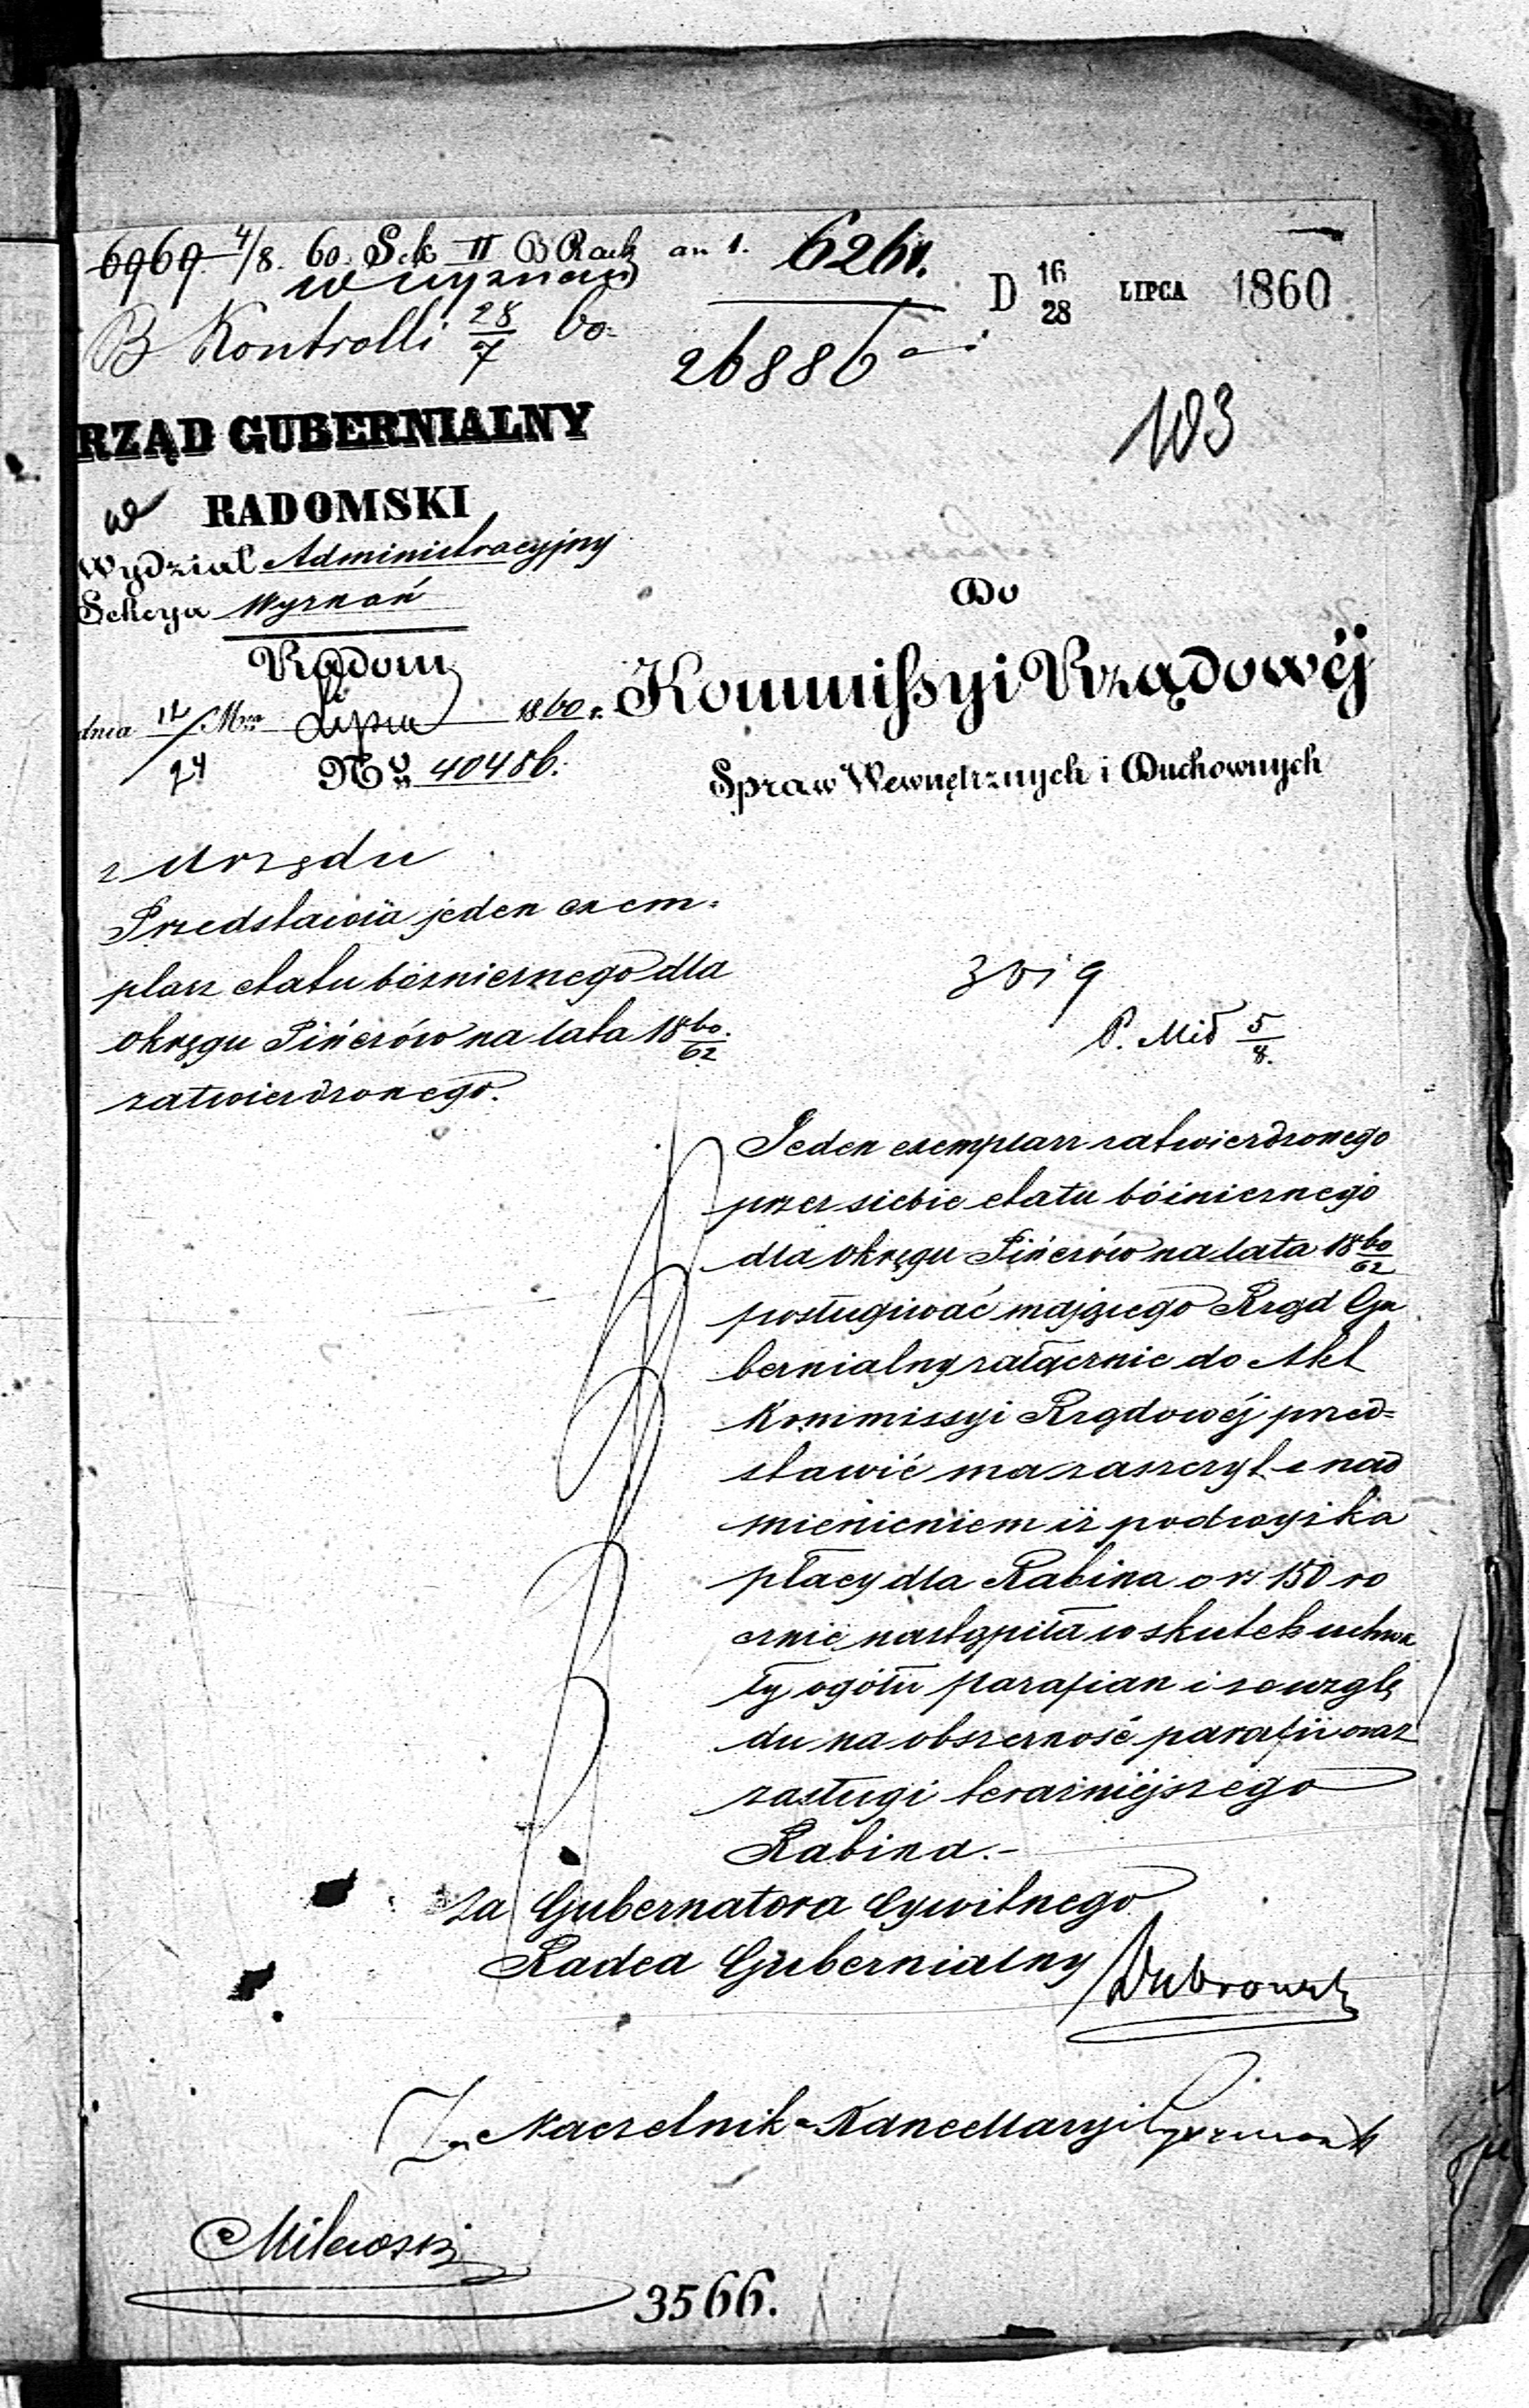 6969 4/8. 60. Sek II B Rach an 1. 6261.
w wyznań
D 16/28 LIPCA 1860
B Kontrolli 28/7 60.
26886
103
RZĄD GUBERNIALNY
RADOMSKI
Wydział Administracyjny
Sekcya Wyznań
Radom
dnia 12/24 Mca Lipca 1860 r.
No 40486.
Do
Kommissyi Rządowéj
Spraw Wewnętrznych i Duchownych
z Urzędu
Przedstawia jeden exem-
plarz etatu bóżnicznego dla
Okręgu Pińczów na lata 1860/62
zatwierdzonego.
P. Mid 5/8.
Jeden exemplarz zatwierdzonego
przez siebie etatu bóżnicznego
dla Okręgu Pińczów na lata 1860/62
posługiwać mającego Rząd Gu
bernialny załącznie do Akt
Kommissyi Rządowéj przed-
stawić ma zaszczyt z nad
mienieniem iż podwyżka
płacy dla Rabina o rs 150 ro
cznie nastąpiła w skutek uchwa
ły ogółu parafian i ze wzglę
du na obszerność parafii oraz
zasługi teraźniejszego
Rabina.-
za Gubernatora Cywilnego
Radca Gubernialny Dubrowski
Za Naczelnik Kancellaryi
Milewski
3566.